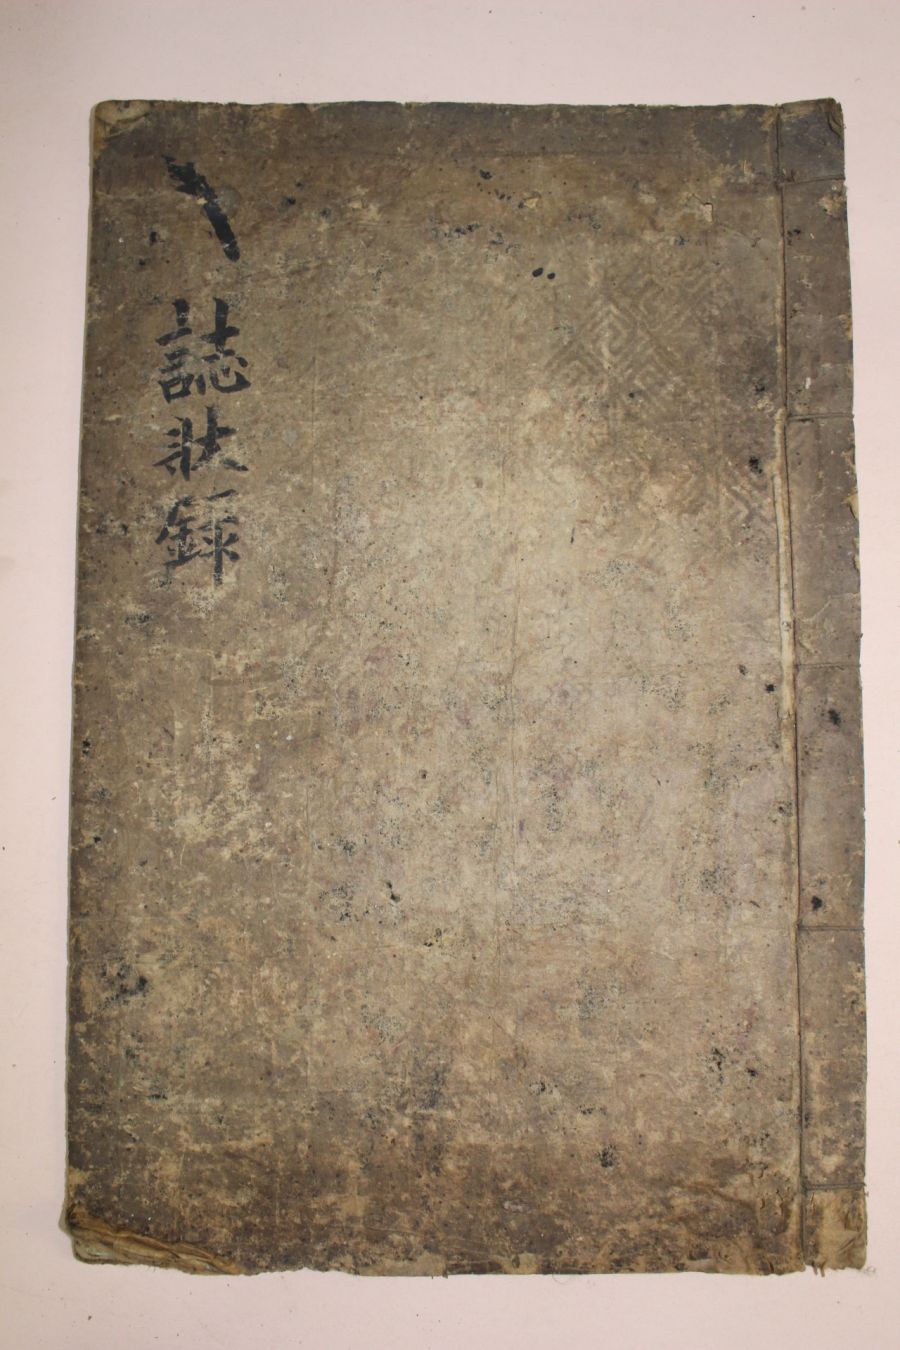 誌狀錄